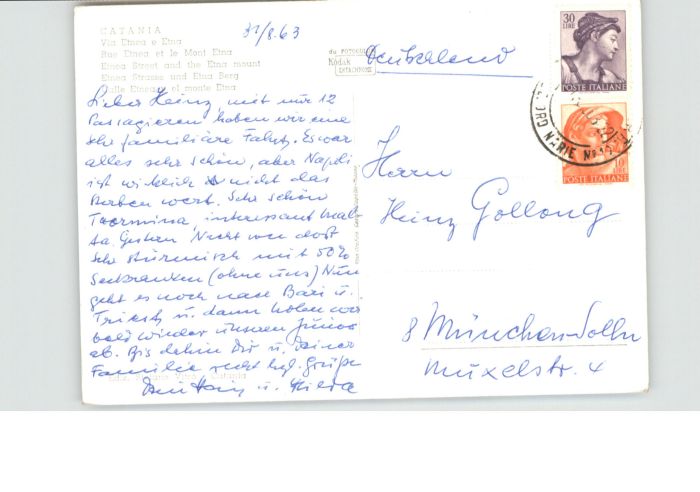 CATANIA
Via Etnea e Etna
Rue Etnea et le Mont Etna
Etnea Street and the Etna mount
Etnea Strasse und Etna Berg
Calle Etnea y el monte Etna
31/8.63
Lieber Heinz, mit nur 12
Passagieren haben wir eine
sehr familiäre Fahrt. Es war
alles sehr schön, aber Napoli
ist wirklich nicht das
Sterben wert. Sehr schön
Taormina, interessant Mal
ta. Gestern Nacht war dort
sehr stürmisch mit 50%
Seekranken (ohne uns) Nun
geht es noch nach Bari u.
Triest u. dann holen wir
bald wieder unseren Junior
ab. Bis dahin Dir u. Deiner
Familie recht hzl. Grüße
Dein u. Hilde
Catania
da FOTOCOLOR
Kodak
EKTACHROME
Deutschland
30
LIRE
POSTE ITALIANE
10
LIRE
POSTE ITALIANE
Herrn
Heinz Gollong
8 München-Solln
Muxelstr. 4